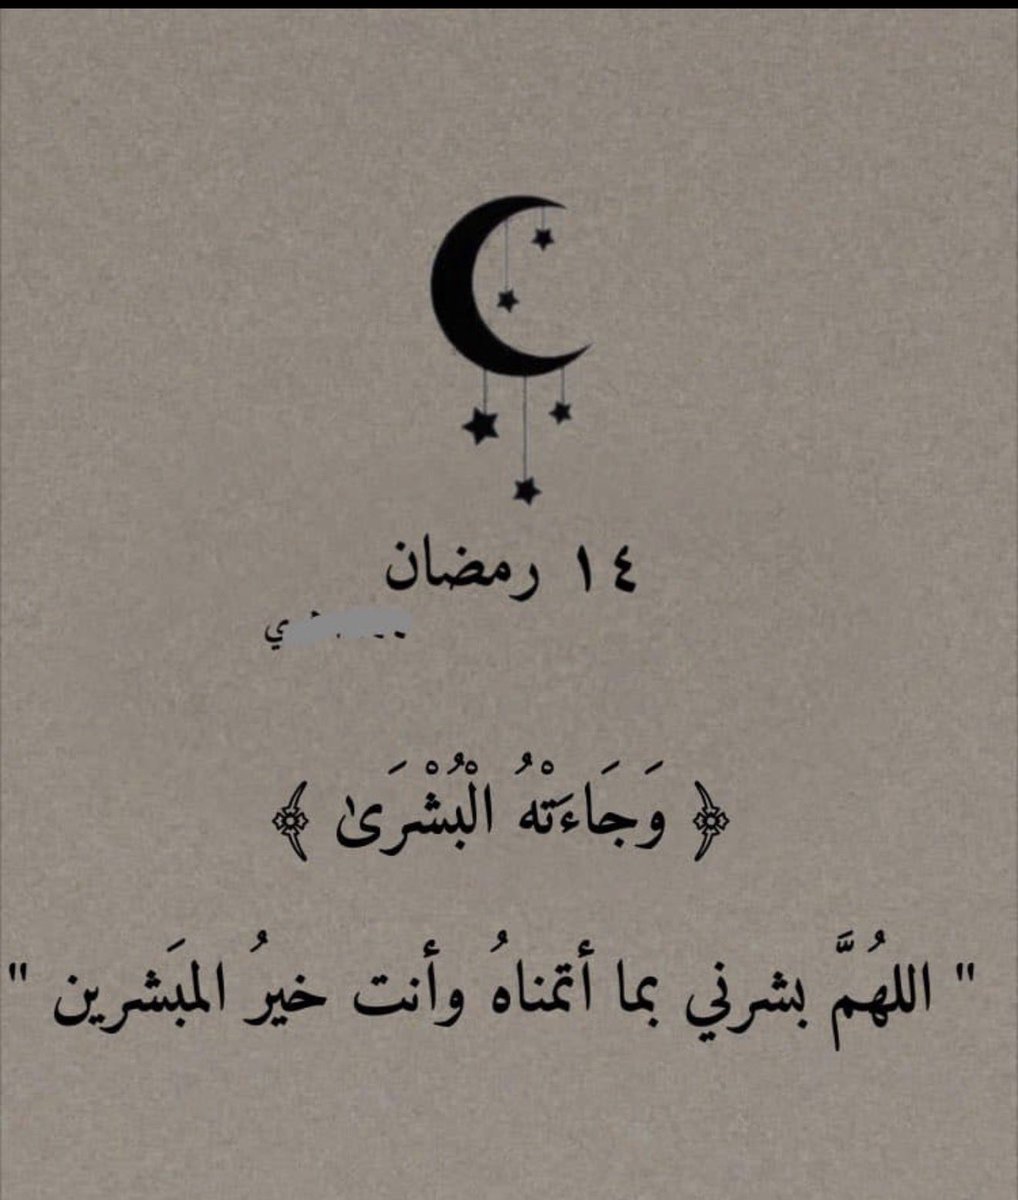 ١٤ رمضان
﴿ وَجَاءَتْهُ الْبُشْرَىٰ ﴾
" اللهُمَّ بشرني بما أتمناهُ وأنت خيرُ المبَشرين "